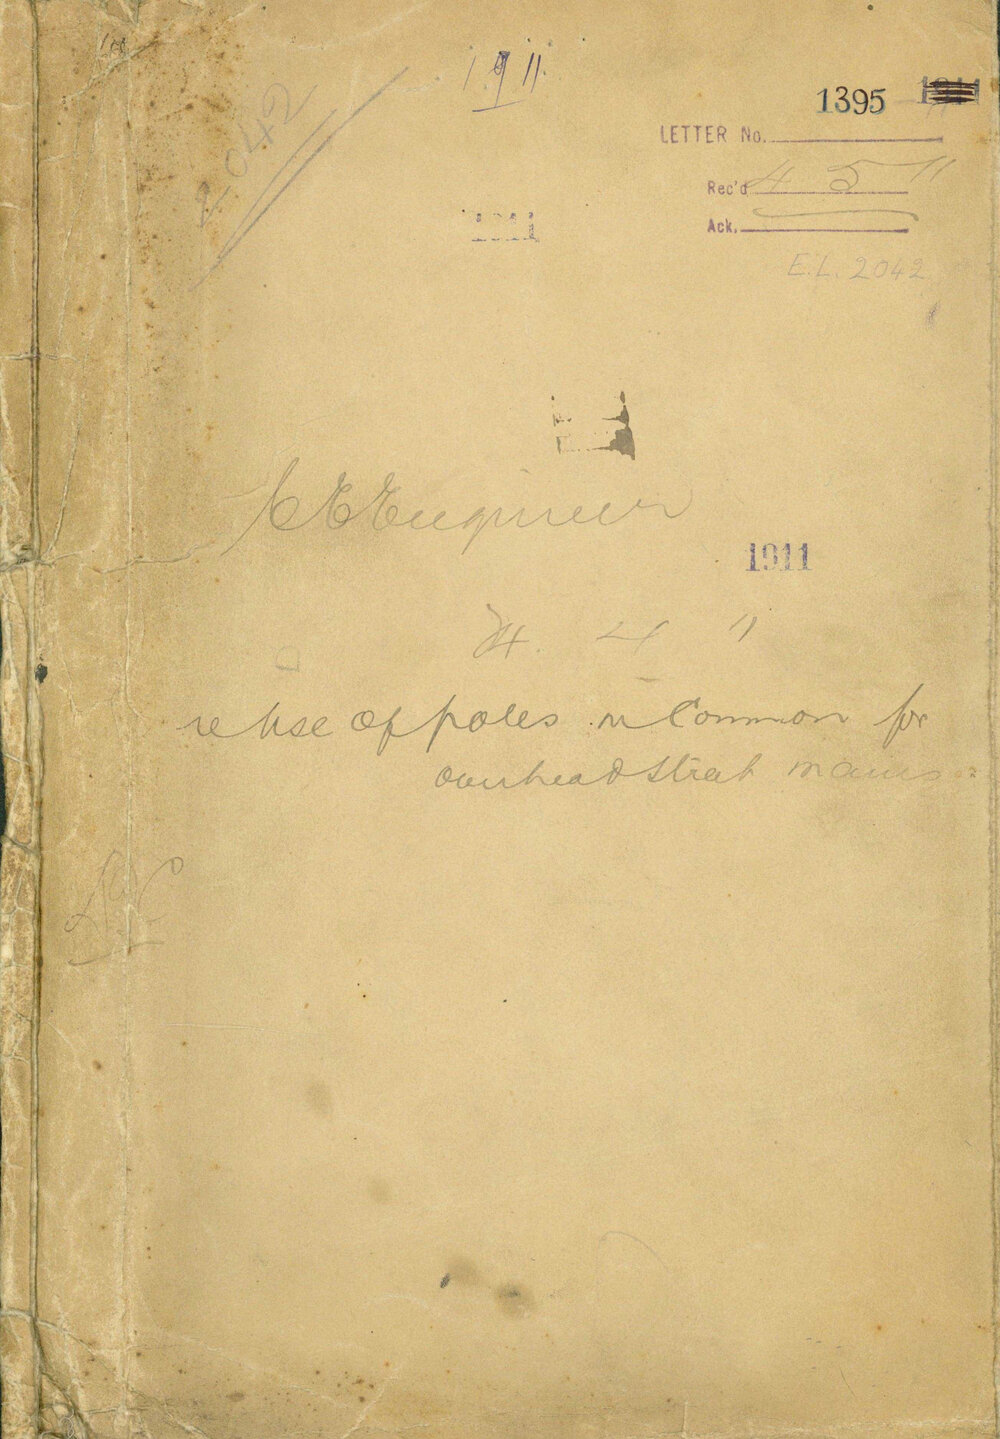 1911
2042
1395
LETTER No.
Rec'd 4 5 11
Ack.
1911
E.L. 2042
C E Engineer
1911
4 11
re Use of poles in Common for
overhead street mains